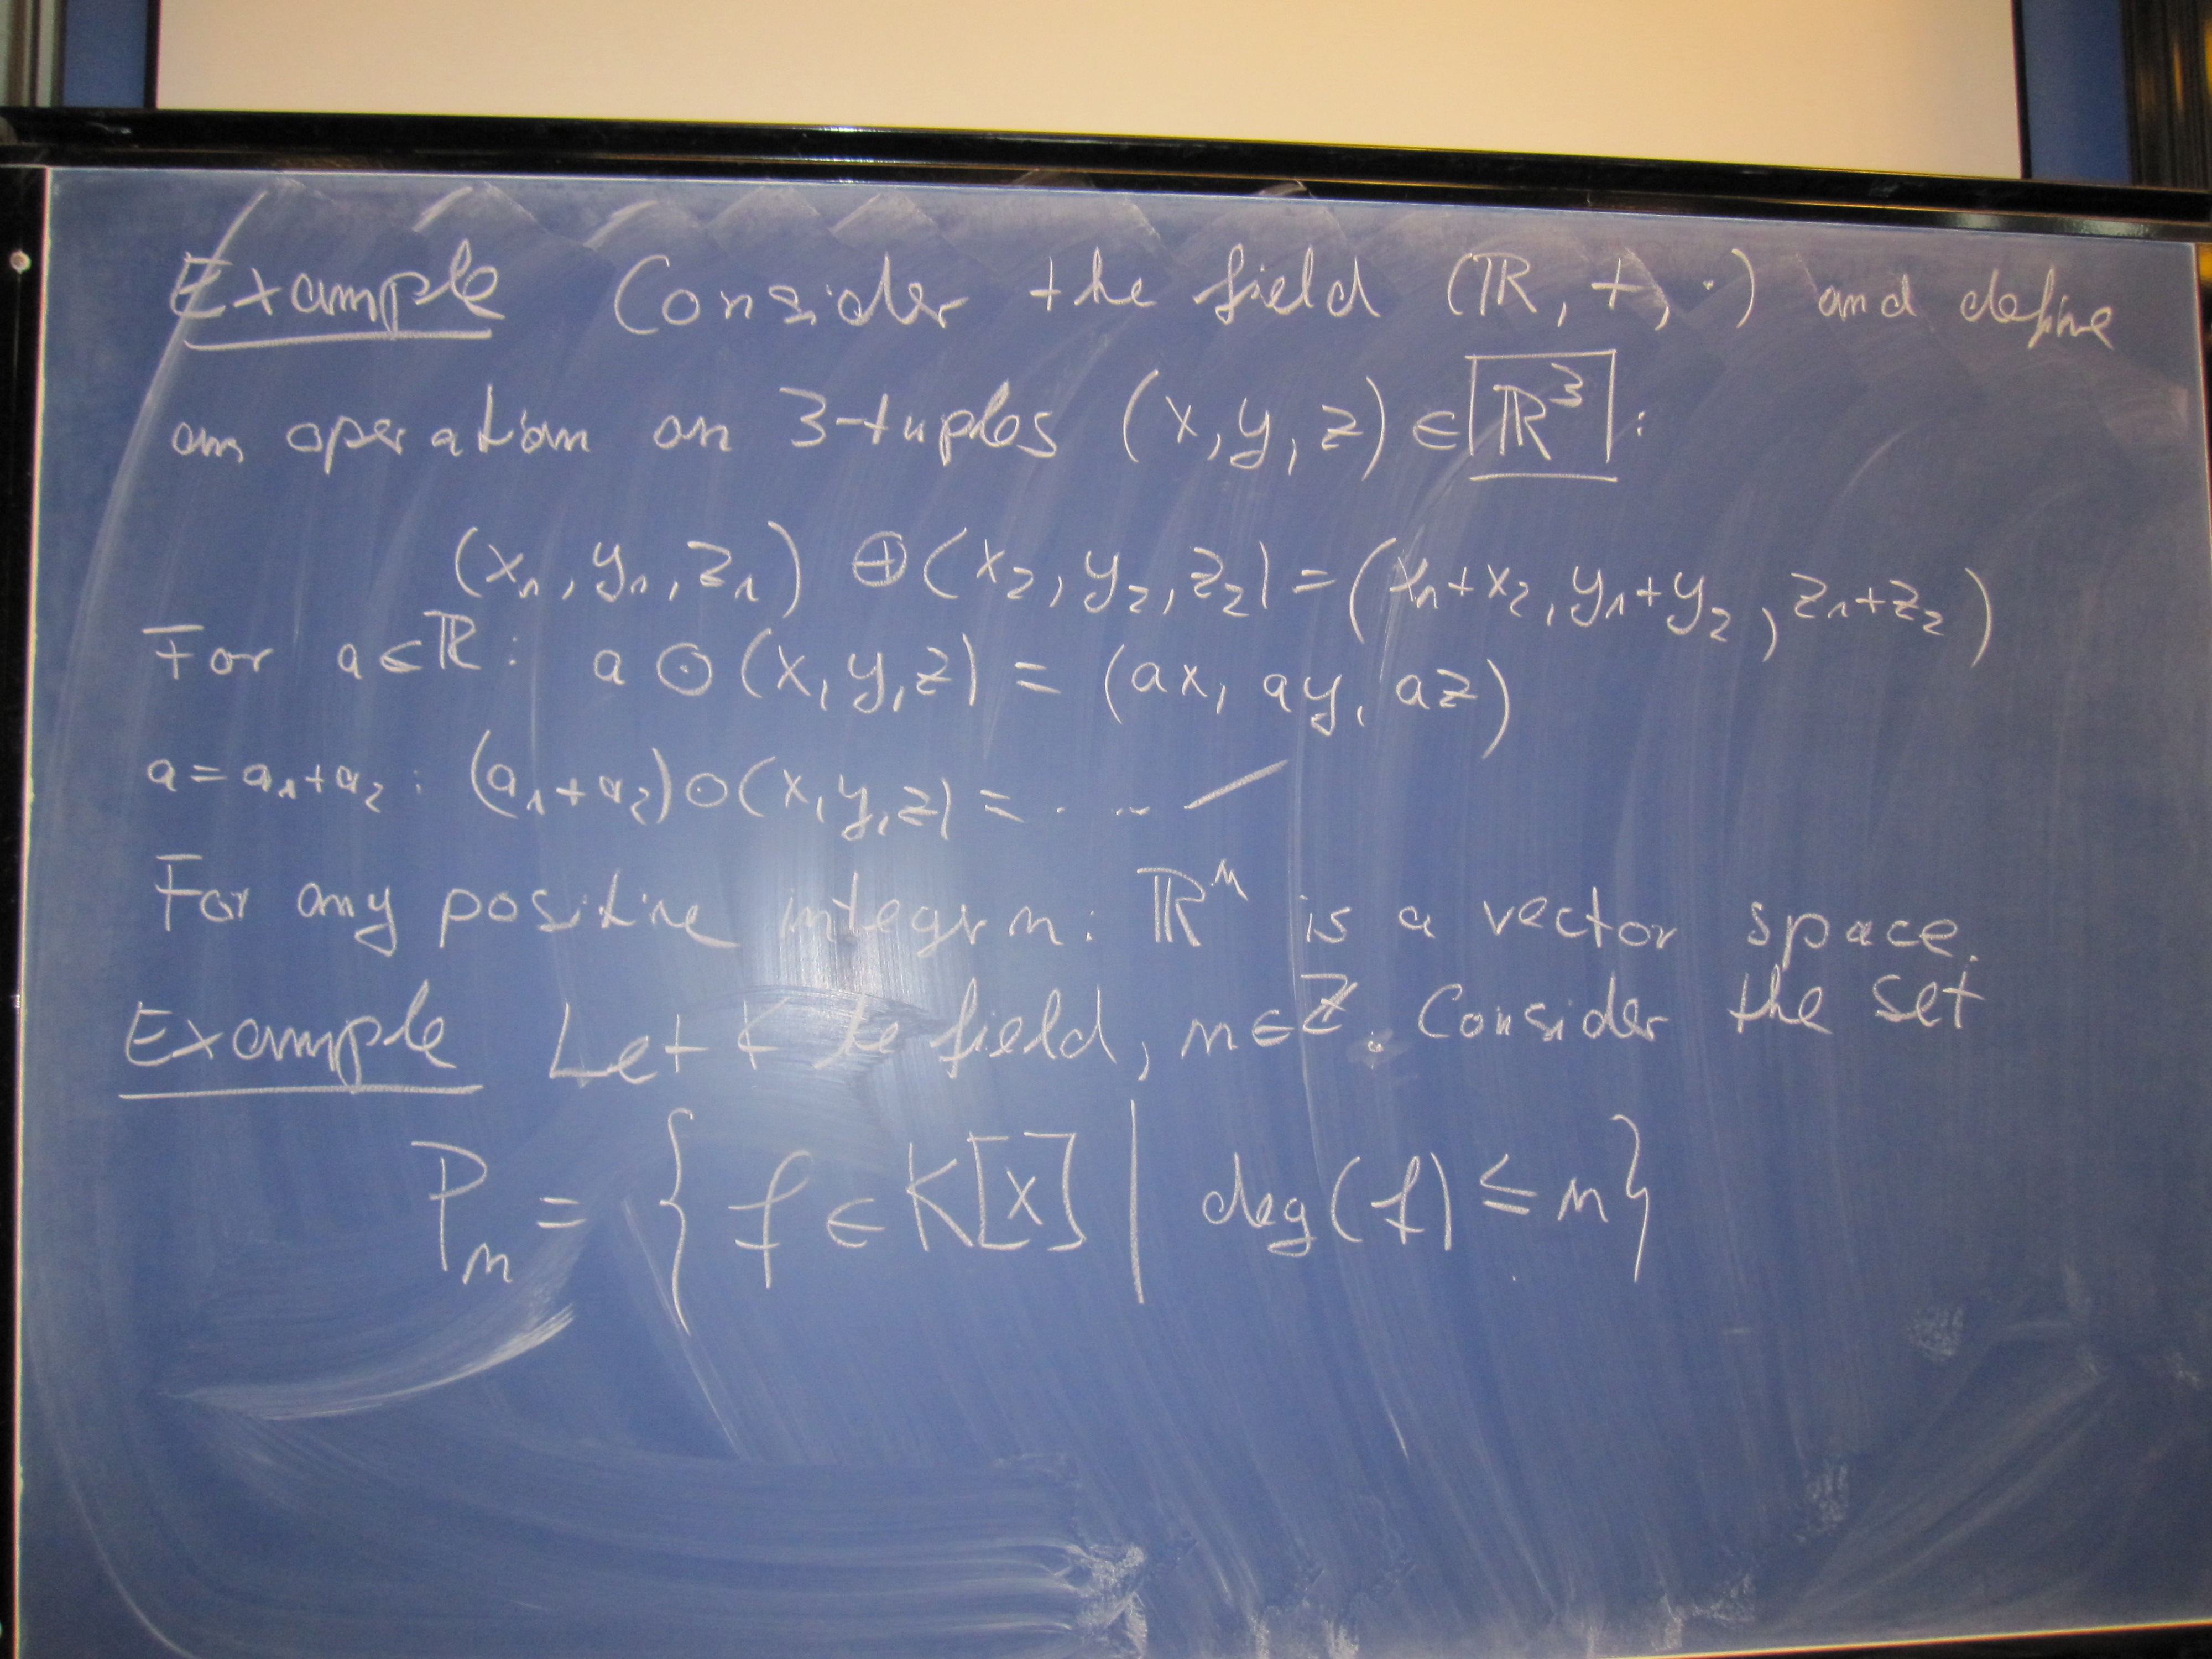 Example Consider the field (ℝ, +, ·) and define
an operation on 3-tuples (x, y, z) ∈ ℝ³ :
(x₁, y₁, z₁) ⊕ (x₂, y₂, z₂) = (x₁+x₂, y₁+y₂, z₁+z₂)
For a∈ℝ: a ⊙ (x, y, z) = (ax, ay, az)
a = a₁+a₂ : (a₁+a₂) ⊙ (x, y, z) = . . . /
For any positive integer n: ℝⁿ is a vector space.
Example Let K be field, n∈ℤ. Consider the set
Pₙ = { f ∈ K[x] | deg(f) ≤ n }